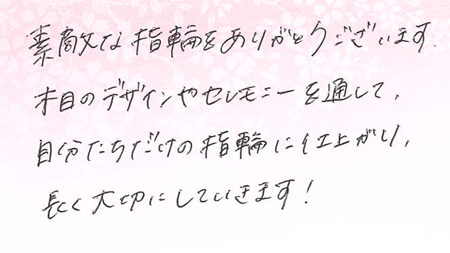 素敵な指輪をありがとうございます.
木目のデザインやセレモニーを通して,
自分たちだけの指輪に仕上がり,
長く大切にしていきます!